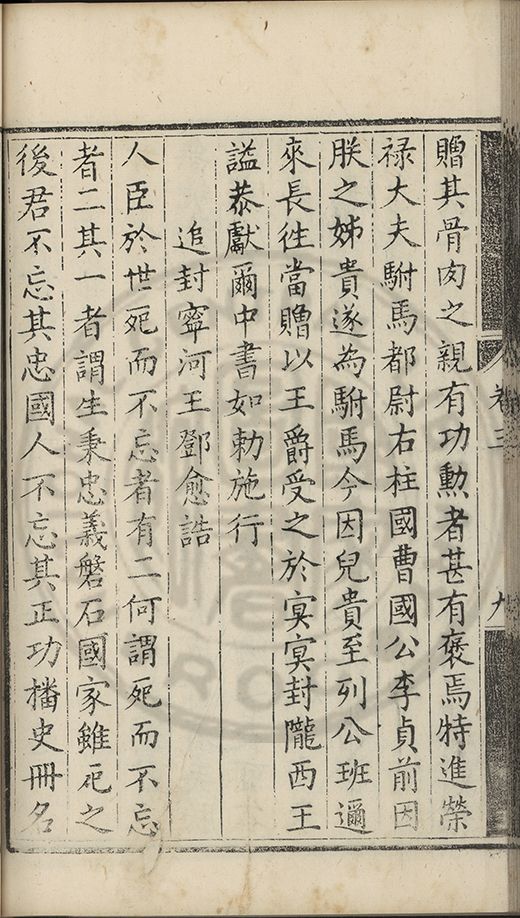 卷三
九
贈其骨肉之親有功勲者甚有褒焉特進榮
禄大夫駙馬都尉右柱國曹國公李貞前因
朕之姊貴遂為駙馬今因兒貴至列公班邇
來長徃當贈以王爵受之於㝠㝠封隴西王
謚恭獻爾中書如勅施行
追封寧河王鄧愈誥
人臣於世死而不忘者有二何謂死而不忘
者二其一者謂生秉忠義磐石國家雖死之
後君不忘其忠國人不忘其正功播史冊名